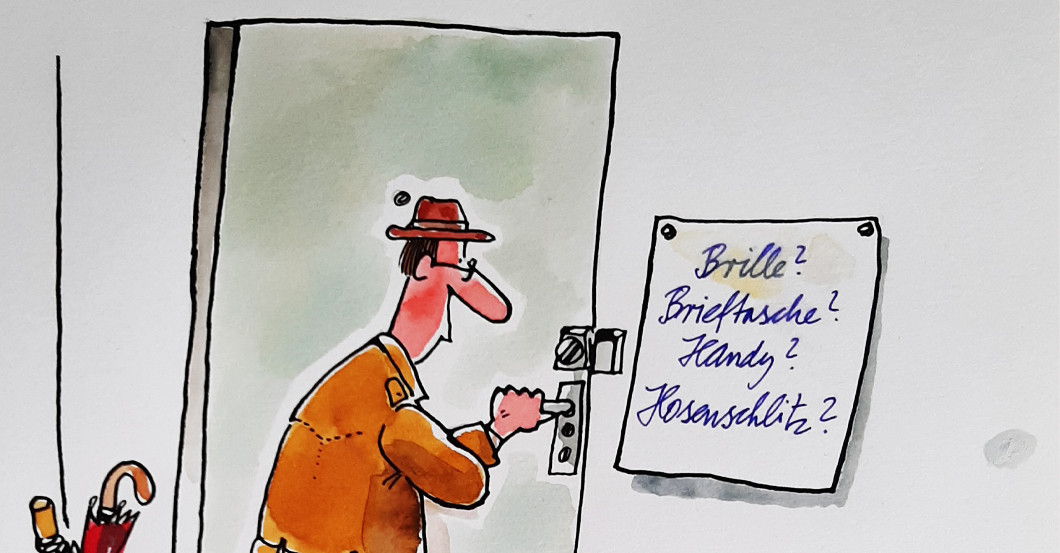 Brille?
Brieftasche?
Handy?
Hosenschlitz?